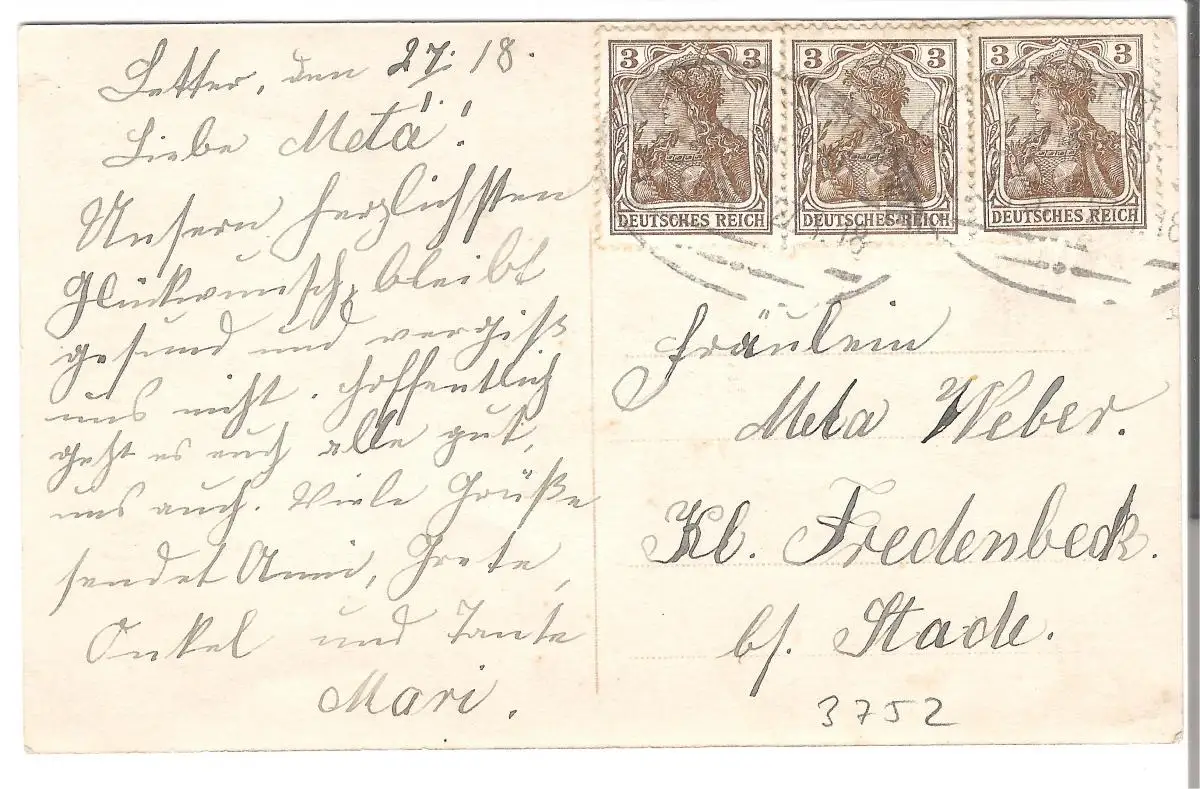 Letter, den 27. 18.
Liebe Meta!
Unsern herzlichsten
Glückwunsch, bleibt
gesund und vergiß
uns nicht. Hoffentlich
geht es euch alle gut,
uns auch. Viele Grüße
sendet Anni, Grete,
Onkel und Tante
Mari.
3 3 3 3 3 3
DEUTSCHES REICH DEUTSCHES REICH DEUTSCHES REICH
.18
.18
Fräulein
Meta Weber.
Kl. Fredenbeck.
b/. Stade.
3752